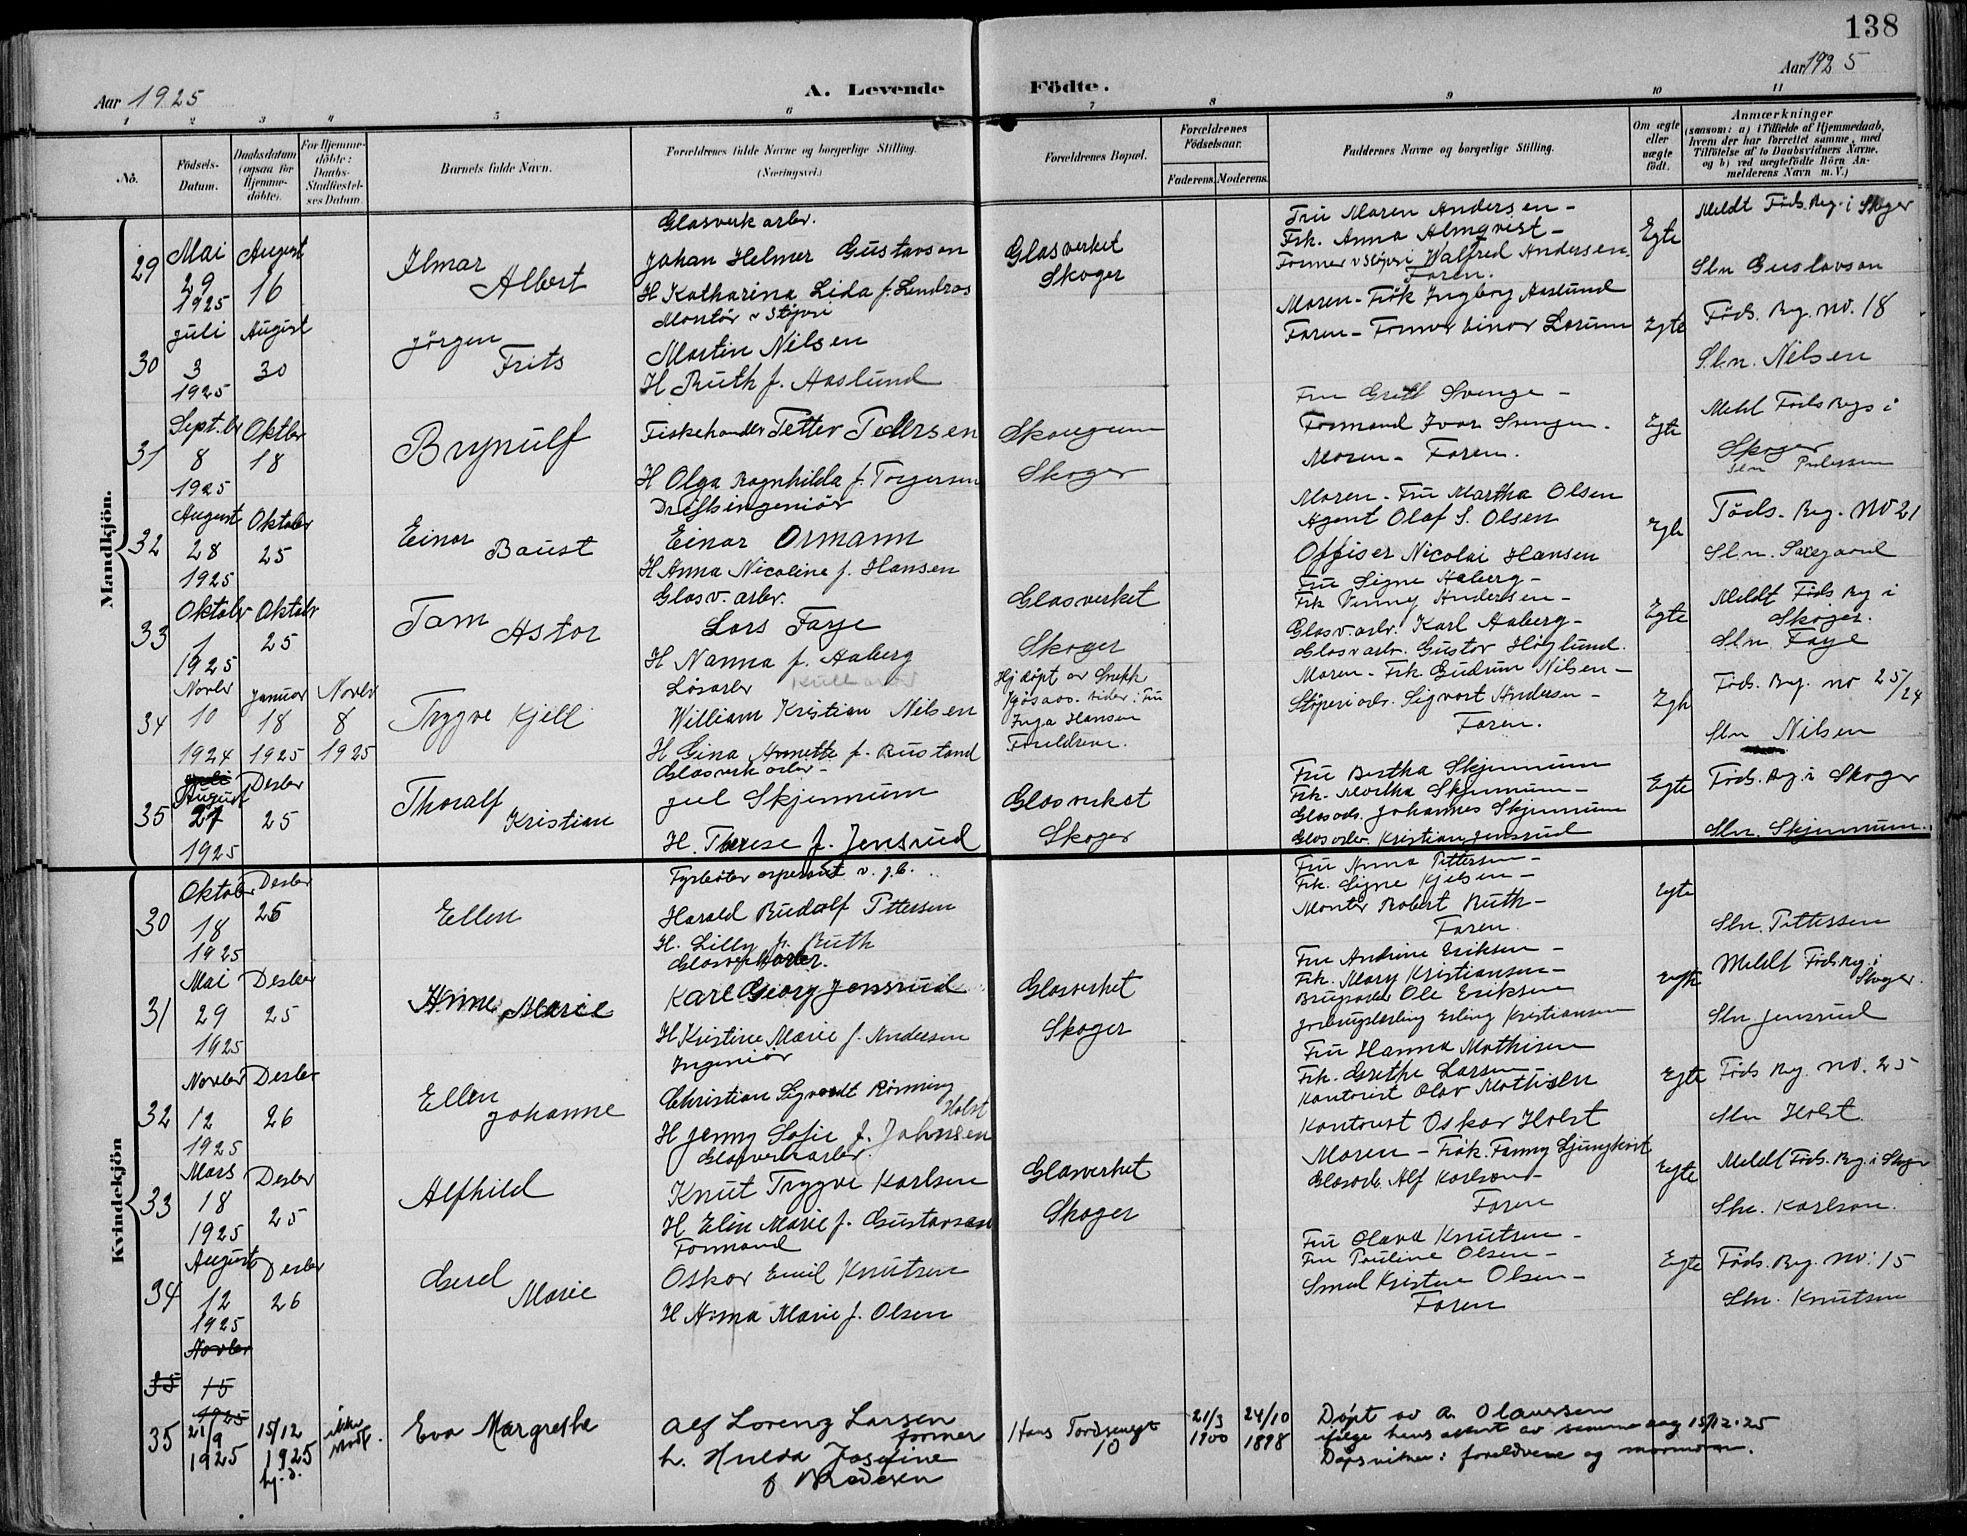 138
Aar 1925
A. Levende Födte.
Aar 1925
1 2 3 4 5 6 7 8 9 10 11
No.
Födsels-Datum.
Daabsdatum (ogsaa for Hjemme-döbte).
For Hjemme-döbte: Daabs-Stadfæstel-ses Datum.
Barnets fulde Navn.
Forældrenes fulde Navne og borgerlige Stilling. (Næringsvei.)
Forældrenes Bopæl.
Forældrenes Födselsaar.
Faderens. Moderens.
Faddernes Navne og borgerlige Stilling.
Om ægte eller uægte födt.
Anmærkninger
(saasom: a) i Tilfælde af Hjemmedaab, hvem der har forrettet samme, med Tilföielse af to Daabsvidners Navne, og b) ved uægtefödte Börn Anmelderens Navn m. V.)
Mandkjön.
29
Mai 29 1925
August 16
Ilmar Albert
Glasverk arbr.
Johan Helmer Gustavson
H Katharina Lida f. Lendros
Glasverket
Skoger
Fru Maren Andersen -
Frk. Anna Almqvist -
Former v Støperi Walfred Andersen
Faren.
Egte
Meldt Føds. Reg. i Skoger
Sln Gustavson
30
Juli 3 1925
August 30
Jörgen Frits
Montör v Støperi
Martin Nilsen
H Ruth f. Aaslund
Moren - Frök Ingborg Aaslund
Faren - Former Einar Lorum
Egte
Føds. Reg. no. 18
S.l.n. Nilsen
31
Sept.br 8 1925
Oktbr 18
Brynulf
Fiskehandler Petter Pedersen
H Olga Ragnhilda f. Torgersen
Skaugum
Skoger
Fru Gretl Svenge -
Formand Ivar Svengen.
Moren - Faren.
Egte
Meld Føds Regs i
Skoger
Sln Pedersen
32
August 28 1925
Oktober 25
Einar Baust
Driftsingeniör
Einar Ormann
H Anna Nicoline f. Hansen
Moren - Fru Martha Olsen
Agent Olaf S. Olsen
Offiser Nicolai Hansen
Føds. Reg. no 21
33
Oktobr 1 1925
Oktobr 25
Tom Astor
Glasv. arbr.
Lars Faye
H Nanna f. Aaberg
Glasverket
Skoger
Fru Signe Aaberg -
Frk Andersen -
Glasv. arbr. Karl Aaberg -
Glasv arbr. Gustav Höglund.
Egte
Meldt Føds Reg i
Skoger.
Sln Faye
34
Novbr 10 1924
Januar 18 1925
Novbr 8 1925
Trygve Kjell
Løsarbr
William Kristian Nilsen
H Gina Annette f. Bustand
Inga Hansen
Foreldrene.
Moren - Frk Gudrun Nilsen -
Støperiarb. Sigvart Andersen -
Faren.
Føds. Reg. no 25/24
Sln Nilsen
35
August 27 1925
Desbr 25
Thoralf Kristian
Glasverk arbr -
Jul Skjennum
H. Therese f. Jensrud
Glasverket
Skoger
Fru Bertha Skjennum
Frk. Martha Skjennum -
Glasarb. Johannes Skjennum
Glasarbr. Kristian Jensrud
Egte
Føds. Reg i Skoger
Sln. Skjennum.
Kvindekjön
30
Oktobr 18 1925
Desbr 25
Ellen
Harald Rudolf Pettersen
H. Lilly f. Ruth
Fru Anna Pettersen -
Frk. Signe Kjelsen -
Montör Robert Ruth -
Faren.
Egte
Sln. Pettersen
31
Mai 29 1925
Desber 25
Anne Marie
Glasverk arbr.
Karl Georg Jensrud
H Kristine Marie f. Andersen
Glasverket
Skoger
Fru Andrine Eriksen -
Frk. Mary Kristiansen -
Brugsarbr Ole Eriksen
Erling Kristiansen
Egte
Meldt Føds Reg. i
Skoger.
Sln. Jensrud
32
Novbr 12 1925
Desbr 26
Ellen Johanne
Ingeniör
Christian Sigvardt Rönning Holst
H Jenny Sofie f. Johnsen
Fru Hanna Mathisen
Frk. Grethe Larsen
Kontorist Olav Mathisen
Kontorist Oskar Holst
Egte
Føds Reg. no. 25
Sln Holst
33
Mars 18 1925
Desbr 25
Alfhild
Glasverk arbr.
Knut Trygve Karlsen
H Elin Marie f. Gustavsen
Glasverket
Skoger
Moren - Frök. Fanny Ljungkvist
Glasarb. Alf Karlson -
Faren
Egte
Meldt Føds. Reg. i Skoger
Sln. Karlson.
34
August 12 1925
Desbr 26
Gerd Marie
Formand
Oskar Emil Knutsen
H Anna Marie f. Olsen
Fru Olava Knutsen -
Fru Pauline Olsen -
Smed Kristen Olsen -
Faren
Egte
Føds. Reg. no: 15
Sln. Knutsen
35
Novbr
15
1925
35
21/9 1925
15/12 1925 hj. d.
ikke stadf.
Eva Margrethe
Alf Lorenz Larsen
former
h. Hulda Josefine
f Bredesen
Hans Tordsensgt 10
21/3 1900
24/10 1898
Døpt av A. Olaussen
ifølge hans attest av samme dag 15/12-25
Dåpsvitner: foreldrene og mormoren.